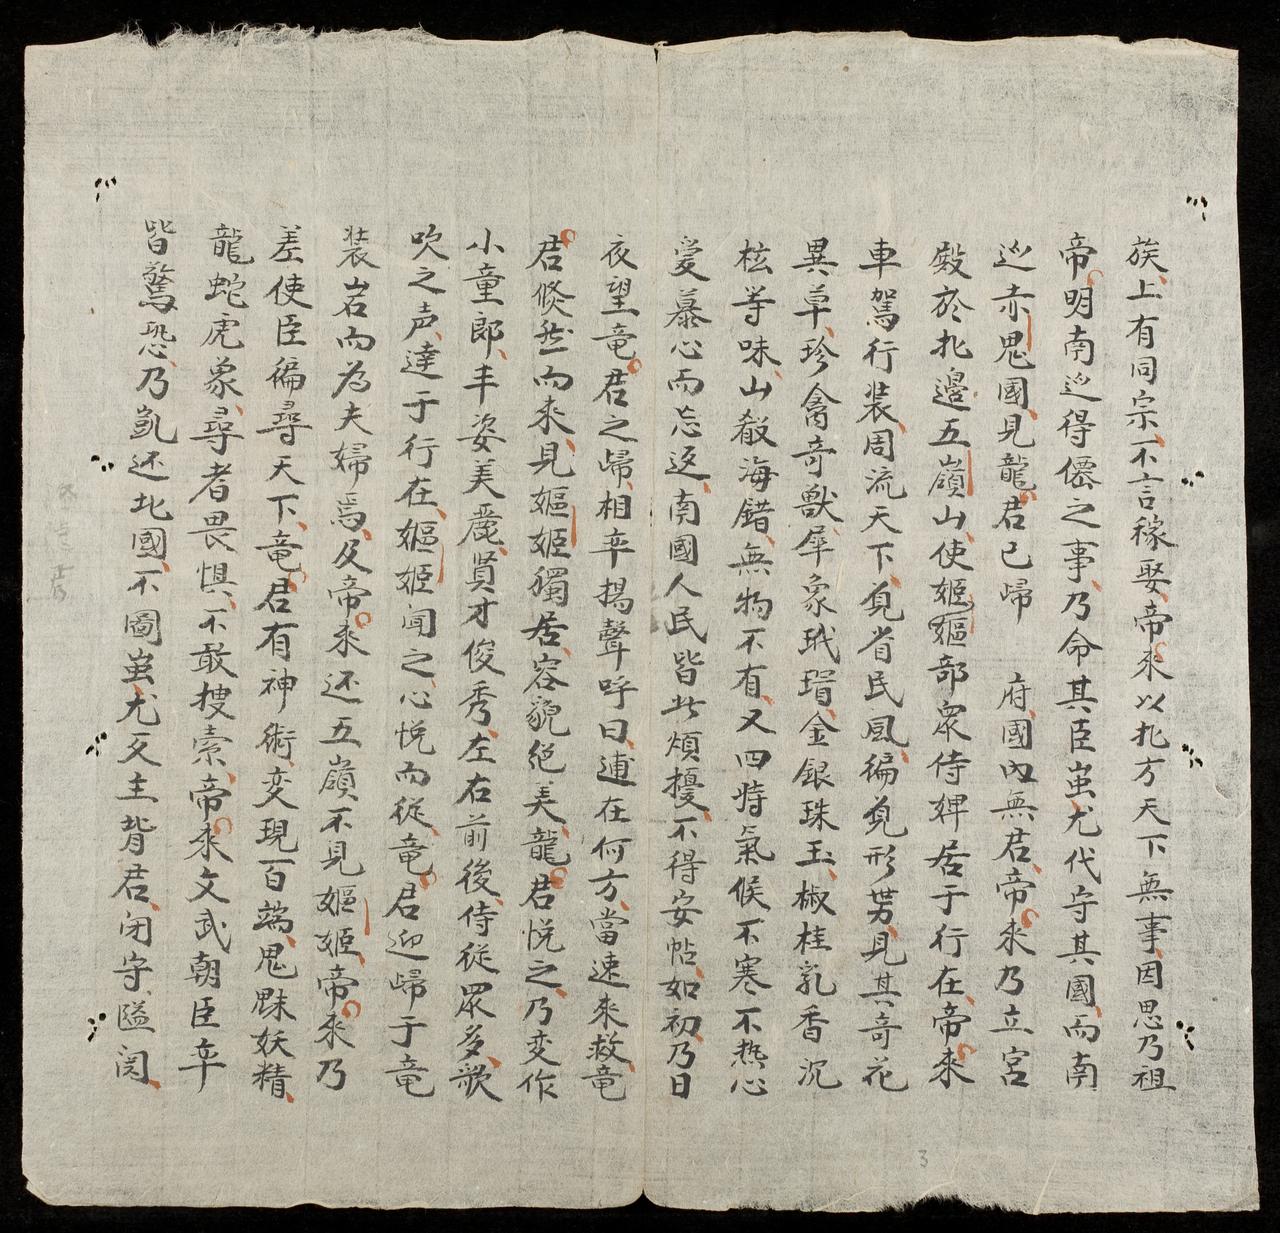 族上有同宗不言稼娶帝來以北方天下無事因思乃祖
帝明南廵得僊之事乃命其臣蚩尤代守其國而南
廵赤鬼國見龍君已歸 府國內無君帝來乃立宮
殿於北邊五嶺山使姬嫗部眾侍婢居于行在帝來
車駕行装周流天下覓省民風徧覓形势見其奇花
異草珍禽奇獸犀象玳瑁金銀珠玉椒桂乳香沉
柱等味山殽海錯無物不有又四時氣候不寒不热心
爱慕心而忘返南國人民皆此煩擾不得安帖如初乃日
夜望竜君之歸相卒揚聲呼曰逋在何方當速來救竜
君倐然而來見嫗姬獨居容貌絕美龍君悅之乃变作
小童郎丰姿美麗賢才俊秀左右前後侍従眾多歌
吹之声達于行在嫗姬闻之心悅而従竜君迎歸于竜
装岩而为夫婦焉及帝來还五嶺不見嫗姬帝來乃
差使臣徧尋天下竜君有神術变現百端鬼魅妖精
龍蛇虎象尋者畏惧不敢搜索帝來文武朝臣卒
皆驚恐乃凱还北國不圖蚩尤叉主背君闭守隘関
3